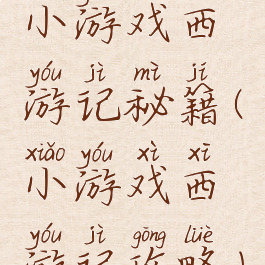 小游戏西
yóu jì mì jí
游记秘籍(
xiǎo yóu xì xī
小游戏西
yóu jì gōng lüè
游记攻略)